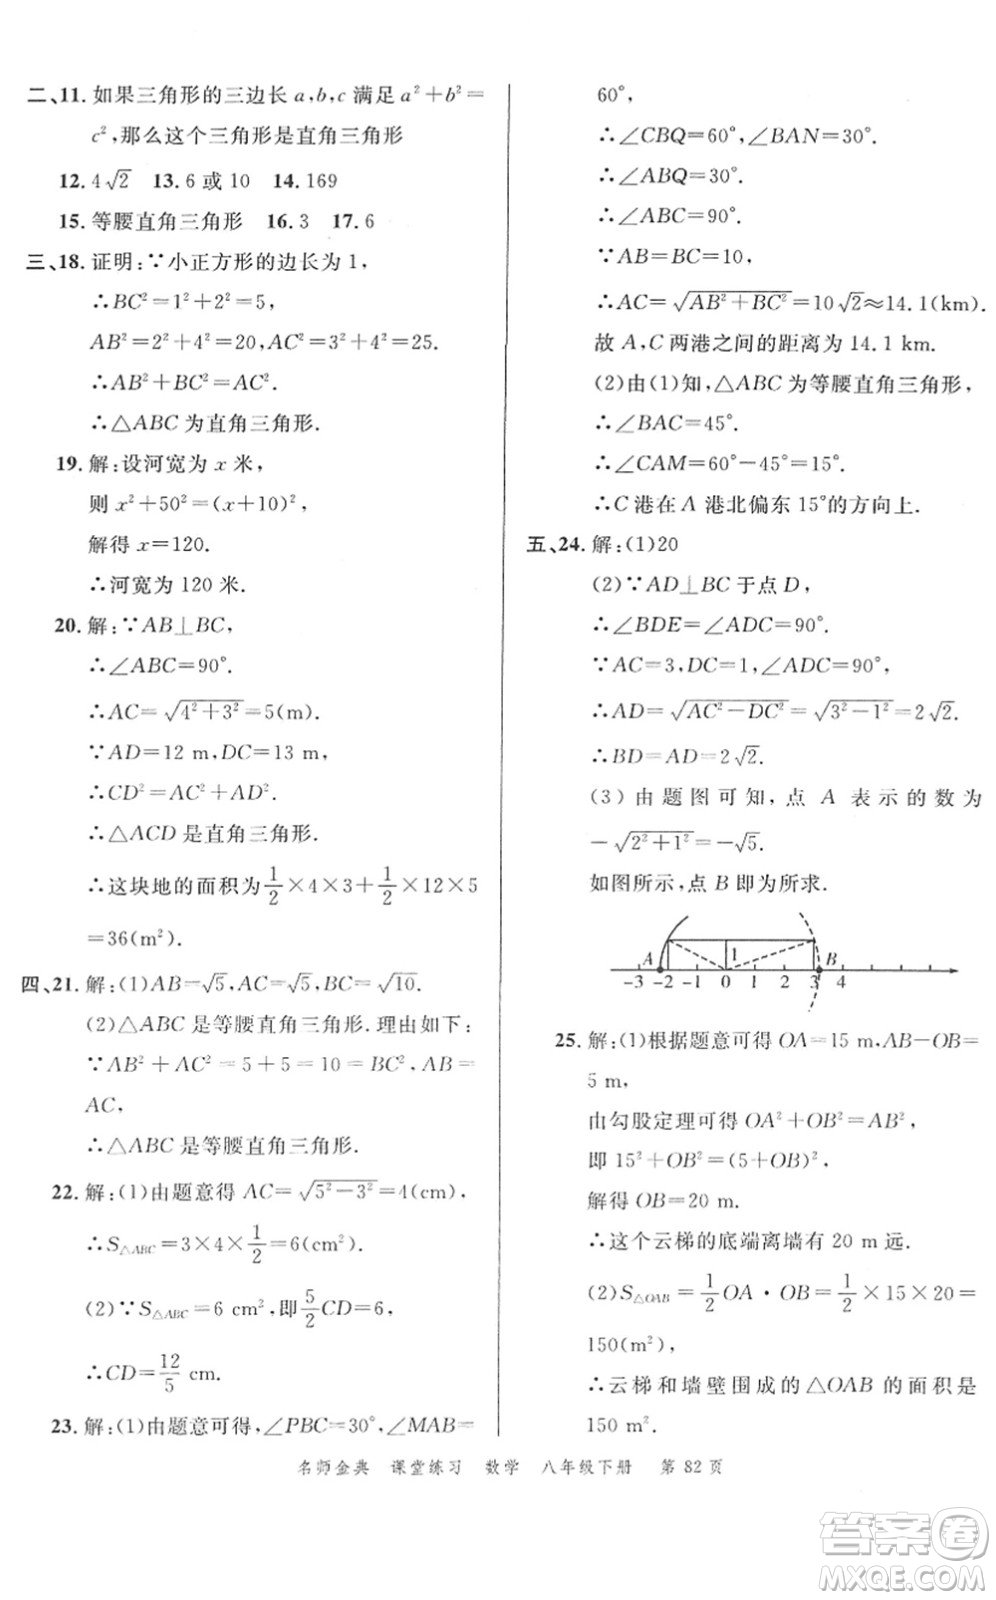 二、11. 如果三角形的三边长 a,b,c 满足 a²+b²=
c²,那么这个三角形是直角三角形
12. 4√2  13. 6 或 10  14. 169
15. 等腰直角三角形  16. 3  17. 6
三、18. 证明:∵小正方形的边长为 1,
∴BC²=1²+2²=5,
AB²=2²+4²=20,AC²=3²+4²=25.
∴AB²+BC²=AC².
∴△ABC 为直角三角形.
19. 解:设河宽为 x 米,
则 x²+50²=(x+10)²,
解得 x=120.
∴河宽为 120 米.
20. 解:∵AB⊥BC,
∴∠ABC=90°.
∴AC=√(4²+3²)=5(m).
∵AD=12 m,DC=13 m,
∴CD²=AC²+AD².
∴△ACD 是直角三角形.
∴这块地的面积为 1/2×4×3+1/2×12×5
=36(m²).
四、21. 解:(1)AB=√5,AC=√5,BC=√10.
(2)△ABC 是等腰直角三角形.理由如下:
∵AB²+AC²=5+5=10=BC²,AB=
AC,
∴△ABC 是等腰直角三角形.
22. 解:(1)由题意得 AC=√(5²-3²)=4(cm),
∴S△ABC=3×4×1/2=6(cm²).
(2)∵S△ABC=6 cm²,即 5/2 CD=6,
∴CD=12/5 cm.
23. 解:(1)由题意可得,∠PBC=30°,∠MAB=
60°,
∴∠CBQ=60°,∠BAN=30°.
∴∠ABQ=30°.
∴∠ABC=90°.
∵AB=BC=10,
∴AC=√(AB²+BC²)=10√2≈14.1(km).
故 A,C 两港之间的距离为 14.1 km.
(2)由(1)知,△ABC 为等腰直角三角形,
∴∠BAC=45°.
∴∠CAM=60°-45°=15°.
∴C 港在 A 港北偏东 15°的方向上.
五、24. 解:(1)20
(2)∵AD⊥BC 于点 D,
∴∠BDE=∠ADC=90°.
∵AC=3,DC=1,∠ADC=90°,
∴AD=√(AC²-DC²)=√(3²-1²)=2√2.
∴BD=AD=2√2.
(3) 由题图可知,点 A 表示的数为
-√(2²+1²)=-√5.
如图所示,点 B 即为所求.
A 1 B
-3 -2 -1 0 1 2 3 4
25. 解:(1)根据题意可得 OA=15 m,AB-OB=
5 m,
由勾股定理可得 OA²+OB²=AB²,
即 15²+OB²=(5+OB)²,
解得 OB=20 m.
∴这个云梯的底端离墙有 20 m 远.
(2)S△OAB=1/2 OA·OB=1/2×15×20=
150(m²),
∴云梯和墙壁围成的△OAB 的面积是
150 m².
名师金典 课堂练习 数学 八年级下册 第 82 页
答案卷
MXQE.COM